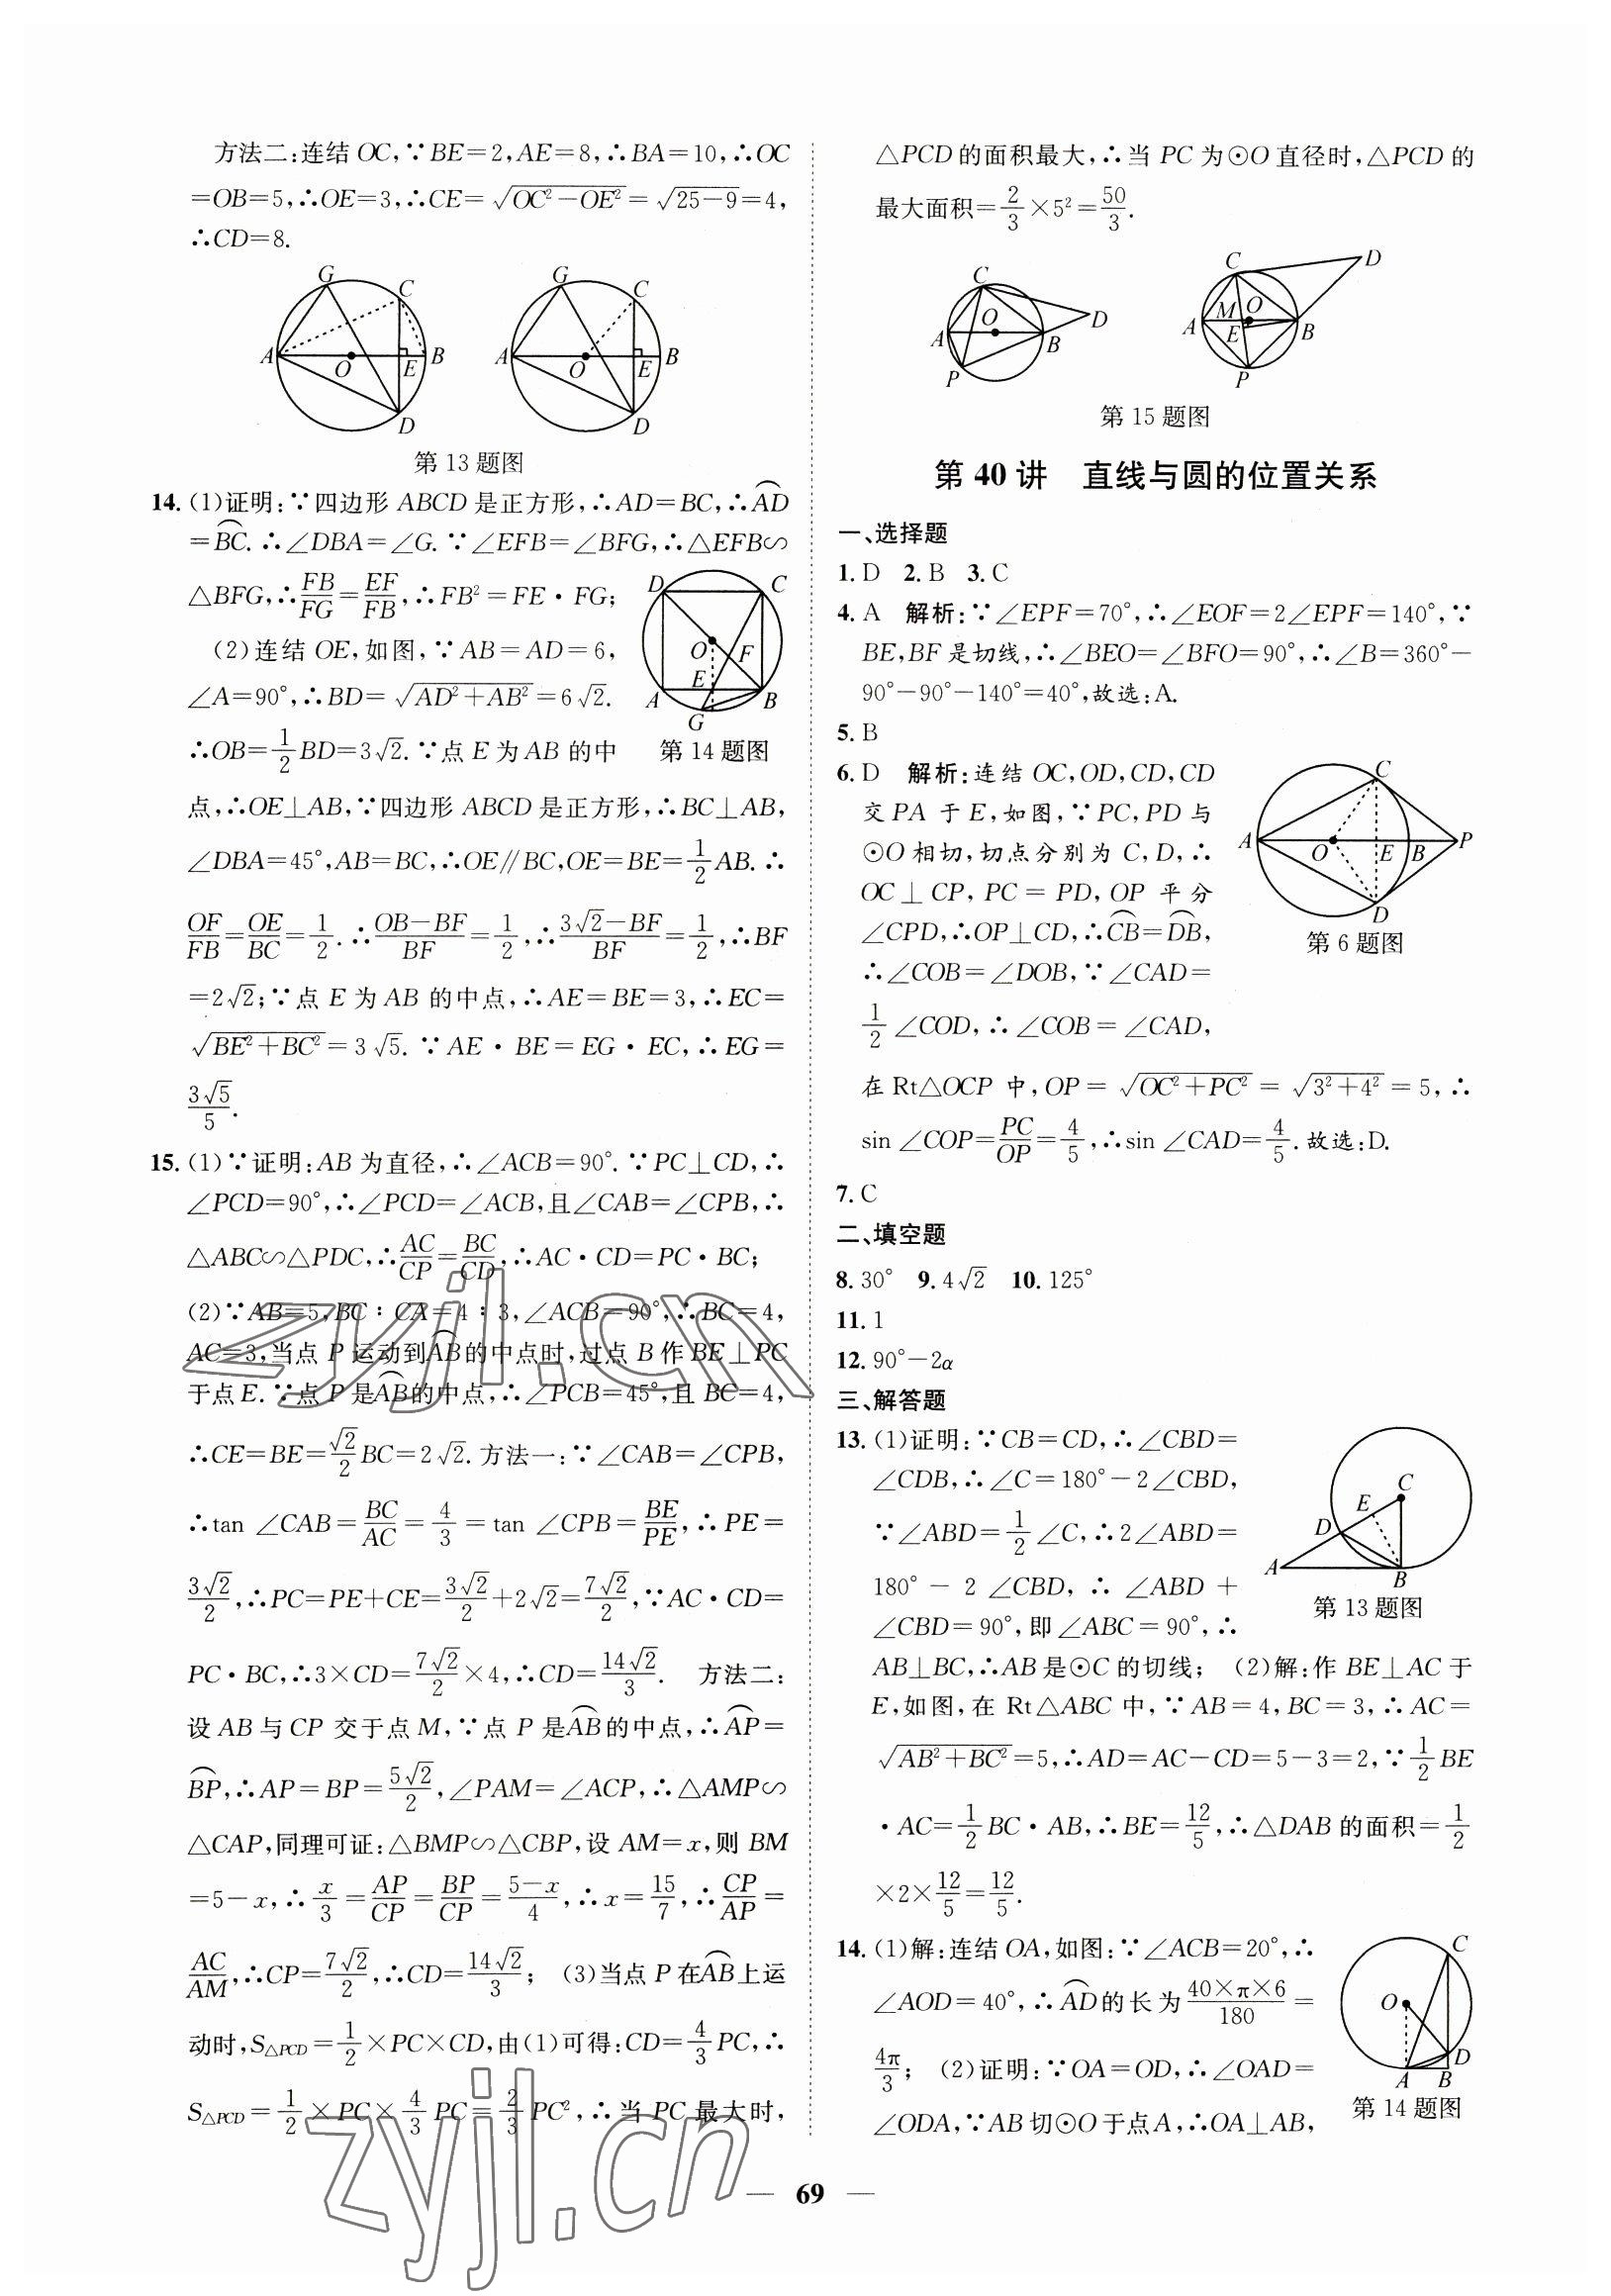 方法二:连结 OC,∵BE=2,AE=8,∴BA=10,∴OC
=OB=5,∴OE=3,∴CE=√(OC²-OE²)=√(25-9)=4,
∴CD=8.
G C A O E B D
G C A O E B D
第 13 题图
14. (1)证明:∵四边形 ABCD 是正方形,∴AD=BC,∴⌒AD
=⌒BC. ∴∠DBA=∠G. ∵∠EFB=∠BFG,∴△EFB∽
△BFG,∴FB/FG=EF/FB,∴FB²=FE·FG;
(2)连结 OE,如图,∵AB=AD=6,
∠A=90°,∴BD=√(AD²+AB²)=6√2.
∴OB=1/2BD=3√2.∵点 E 为 AB 的中
D C O F E A B G
第 14 题图
点,∴OE⊥AB,∵四边形 ABCD 是正方形,∴BC⊥AB,
∠DBA=45°,AB=BC,∴OE∥BC,OE=BE=1/2AB.∴
OF/FB=OE/BC=1/2.∴(OB-BF)/BF=1/2,∴(3√2-BF)/BF=1/2,∴BF
=2√2;∵点 E 为 AB 的中点,∴AE=BE=3,∴EC=
√(BE²+BC²)=3√5. ∵AE·BE=EG·EC,∴EG=
3√5/5.
15. (1)∵证明:AB 为直径,∴∠ACB=90°.∵PC⊥CD,∴
∠PCD=90°,∴∠PCD=∠ACB,且∠CAB=∠CPB,∴
△ABC∽△PDC,∴AC/CP=BC/CD,∴AC·CD=PC·BC;
(2)∵AB=5,BC∶CA=4∶3,∠ACB=90°,∴BC=4,
AC=3,当点 P 运动到⌒AB的中点时,过点 B 作 BE⊥PC
于点 E.∵点 P 是⌒AB的中点,∴∠PCB=45°,且 BC=4,
∴CE=BE=√2/2BC=2√2.方法一:∵∠CAB=∠CPB,
∴tan ∠CAB=BC/AC=4/3=tan ∠CPB=BE/PE,∴PE=
3√2/2,∴PC=PE+CE=3√2/2+2√2=7√2/2,∵AC·CD=
PC·BC,∴3×CD=7√2/2×4,∴CD=14√2/3. 方法二:
设 AB 与 CP 交于点 M,∵点 P 是⌒AB的中点,∴⌒AP=
⌒BP,∴AP=BP=5√2/2,∠PAM=∠ACP,∴△AMP∽
△CAP,同理可证:△BMP∽△CBP,设 AM=x,则 BM
=5-x,∴x/3=AP/CP=BP/CP=(5-x)/4,∴x=15/7,∴CP/AP=
AC/AM,∴CP=7√2/2,∴CD=14√2/3; (3)当点 P 在⌒AB上运
动时,S△PCD=1/2×PC×CD,由(1)可得:CD=4/3PC,∴
S△PCD=1/2×PC×4/3PC=2/3PC²,∴当 PC 最大时,
△PCD 的面积最大,∴当 PC 为⊙O 直径时,△PCD 的
最大面积=2/3×5²=50/3.
C D A O B P
C D A M O E B P
第 15 题图
第 40 讲 直线与圆的位置关系
一、选择题
1. D 2. B 3. C
4. A 解析:∵∠EPF=70°,∴∠EOF=2∠EPF=140°,∵
BE,BF 是切线,∴∠BEO=∠BFO=90°,∴∠B=360°-
90°-90°-140°=40°,故选:A.
5. B
6. D 解析:连结 OC,OD,CD,CD
交 PA 于 E,如图,∵PC,PD 与
⊙O 相切,切点分别为 C,D,∴
OC⊥CP,PC=PD,OP 平分
∠CPD,∴OP⊥CD,∴⌒CB=⌒DB,
∴∠COB=∠DOB,∵∠CAD=
1/2∠COD,∴∠COB=∠CAD,
C A O E B P D
第 6 题图
在 Rt△OCP 中,OP=√(OC²+PC²)=√(3²+4²)=5,∴
sin ∠COP=PC/OP=4/5,∴sin ∠CAD=4/5.故选:D.
7. C
二、填空题
8. 30° 9. 4√2 10. 125°
11. 1
12. 90°-2α
三、解答题
13. (1)证明:∵CB=CD,∴∠CBD=
∠CDB,∴∠C=180°-2∠CBD,
∵∠ABD=1/2∠C,∴2∠ABD=
180°-2∠CBD,∴∠ABD+
∠CBD=90°,即∠ABC=90°,∴
C E D A B
第 13 题图
AB⊥BC,∴AB 是⊙C 的切线; (2)解:作 BE⊥AC 于
E,如图,在 Rt△ABC 中,∵AB=4,BC=3,∴AC=
√(AB²+BC²)=5,∴AD=AC-CD=5-3=2,∵1/2BE
·AC=1/2BC·AB,∴BE=12/5,∴△DAB 的面积=1/2
×2×12/5=12/5.
14. (1)解:连结 OA,如图:∵∠ACB=20°,∴
∠AOD=40°,∴⌒AD的长为(40×π×6)/180=
4π/3; (2)证明:∵OA=OD,∴∠OAD=
∠ODA,∵AB 切⊙O 于点 A,∴OA⊥AB,
C O D A B
第 14 题图
— 69 —
zyjl.cn
zyjl.cn